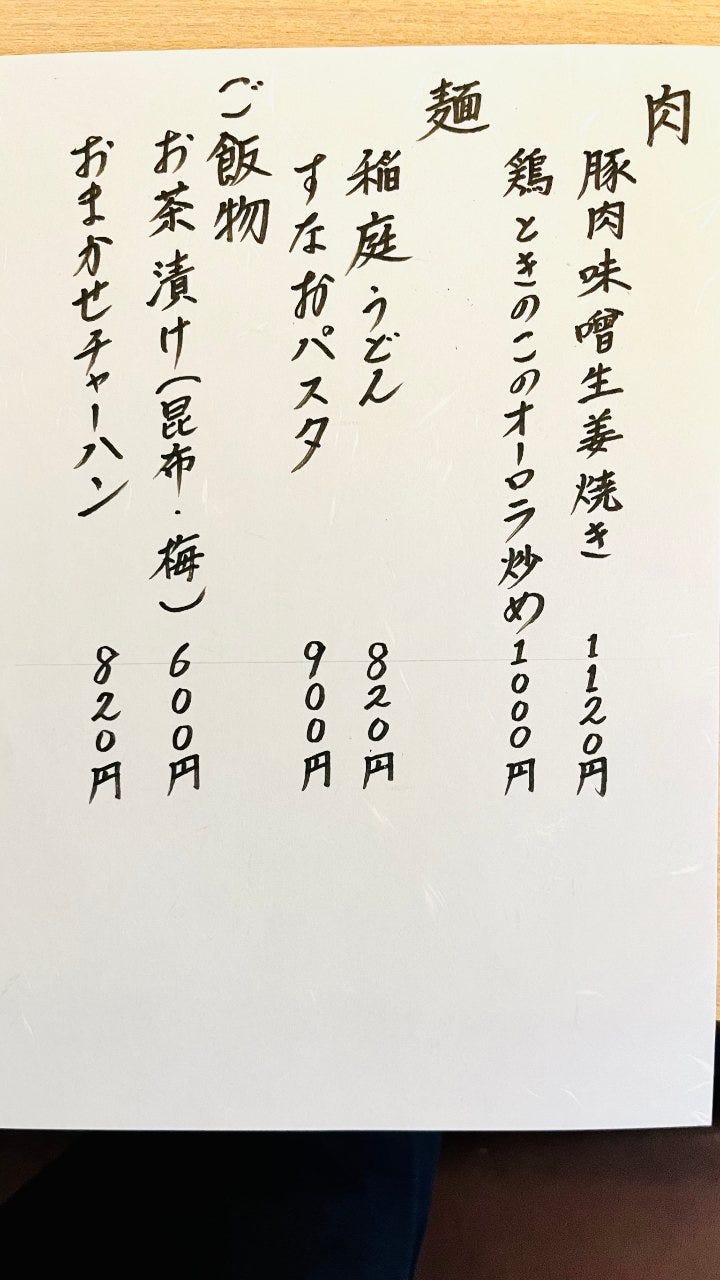 肉
豚肉味噌生姜焼き 1120円
鶏ときのこのオーロラ炒め 1000円
麺
稲庭うどん 820円
すなおパスタ 900円
ご飯物
お茶漬け(昆布・梅) 600円
おまかせチャーハン 820円